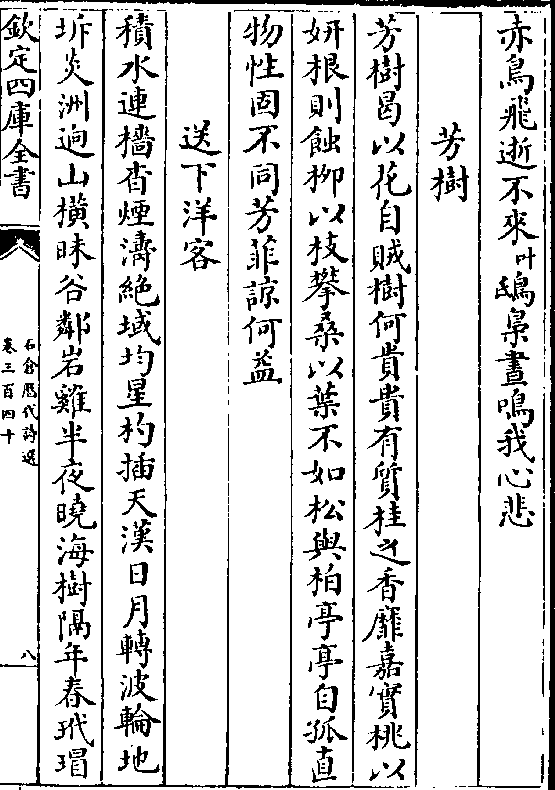 赤烏飛逝不來叶鴟梟晝鳴我心悲
芳樹
芳樹曷以花自賊樹何貴貴有質桂之香靡嘉實桃以
妍根則蝕柳以枝攀桑以葉不如松與柏亭亭自孤直
物性固不同芳菲諒何益
送下洋客
積水連檣杳煙濤絶域均星杓插天漢日月轉波輪地
坼炎洲迥山横昧谷鄰岩雞半夜曉海樹隔年春玳瑁
欽定四庫全書
石倉歷代詩選
卷三百四十
八